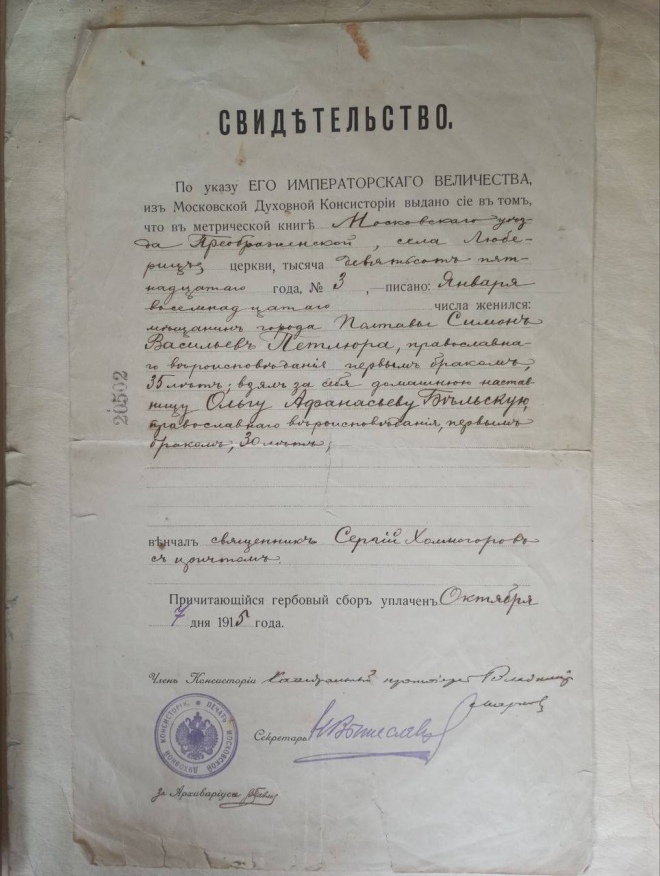 СВИДѢТЕЛЬСТВО.
По указу ЕГО ИМПЕРАТОРСКАГО ВЕЛИЧЕСТВА,
изъ Московской Духовной Консисторіи выдано сіе въ томъ,
что въ метрической книгѣ Московскаго уѣз-
да Преображенской, села Любе-
рицъ церкви, тысяча девятьсотъ пят-
надцатаго года, № 3, —писано: Января
восемнадцатаго числа женился:
мѣщанинъ города Полтавы Симонъ
Васильевъ Петлюра, православна-
го вѣроисповѣданія первымъ бракомъ,
35 лѣтъ; взялъ за себя домашнюю настав-
ницу Ольгу Афанасьеву Бѣльскую,
православнаго вѣроисповѣданія, первымъ
бракомъ, 30 лѣтъ;
20502
вѣнчалъ священникъ Сергій Холмогоровъ
съ причтомъ.
Причитающійся гербовый сборъ уплаченъ Октября
7 дня 1915 года.
Членъ Консисторіи Каѳедральный протоіерей
Секретарь
ПЕЧАТЬ МОСКОВСКОЙ ДУХОВНОЙ КОНСИСТОРІИ
За Архиваріуса